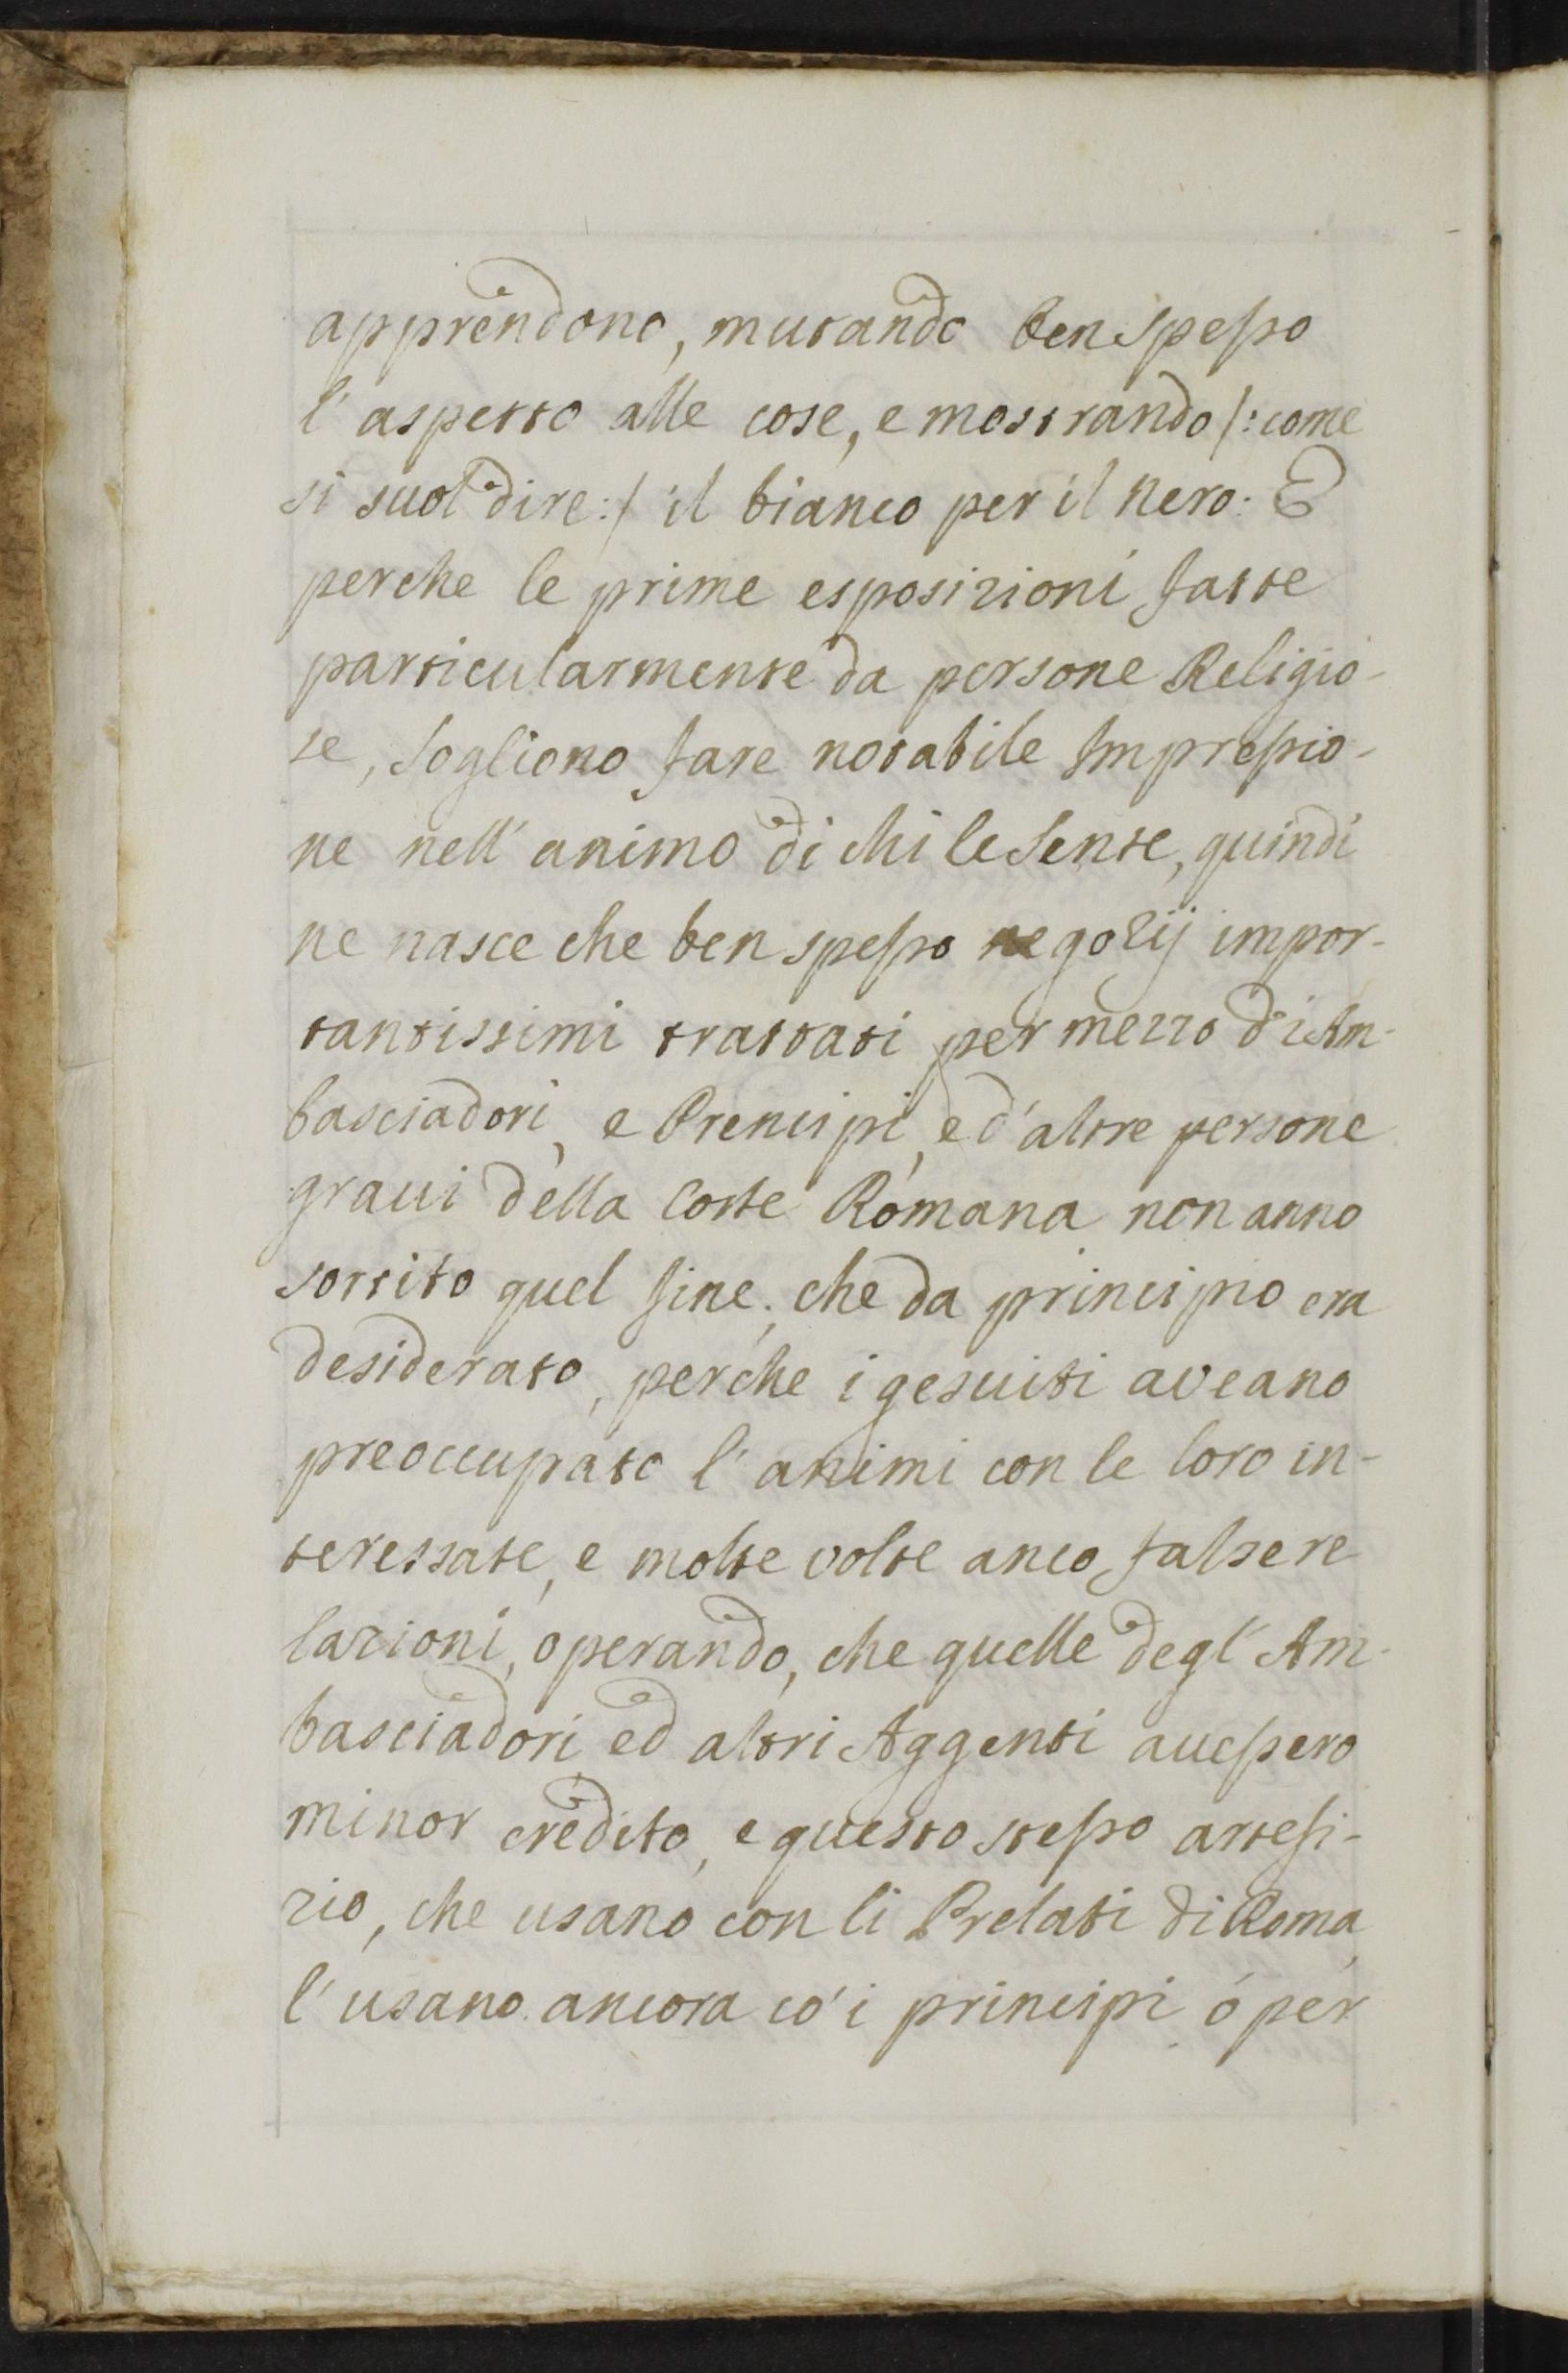 apprendono, mutando ben spesso
l'aspetto alle cose, e mostrando /: come
si suol dire :/ il bianco per il nero: E
perche le prime esposizioni fatte
particularmente da persone Religio-
se, sogliono fare notabile Impressio-
ne nell'animo di chi le sente, quindi
ne nasce che ben spesso negozij impor-
tantissimi trattati per mezzo di Am-
basciadori, e Prencipi, e d'altre persone
graui della Corte Romana non anno
sortito quel fine, che da principio era
desiderato, perche i gesuiti aveano
preoccupato l'animi con le loro in-
teressate, e molte volte anco false re
lazioni, operando, che quelle degl'Am-
basciadori, ed altri Aggenti auessero
minor credito, e questo stesso artefi-
zio, che usano con li Prelati di Roma,
l'usano ancora co'i principi ó per